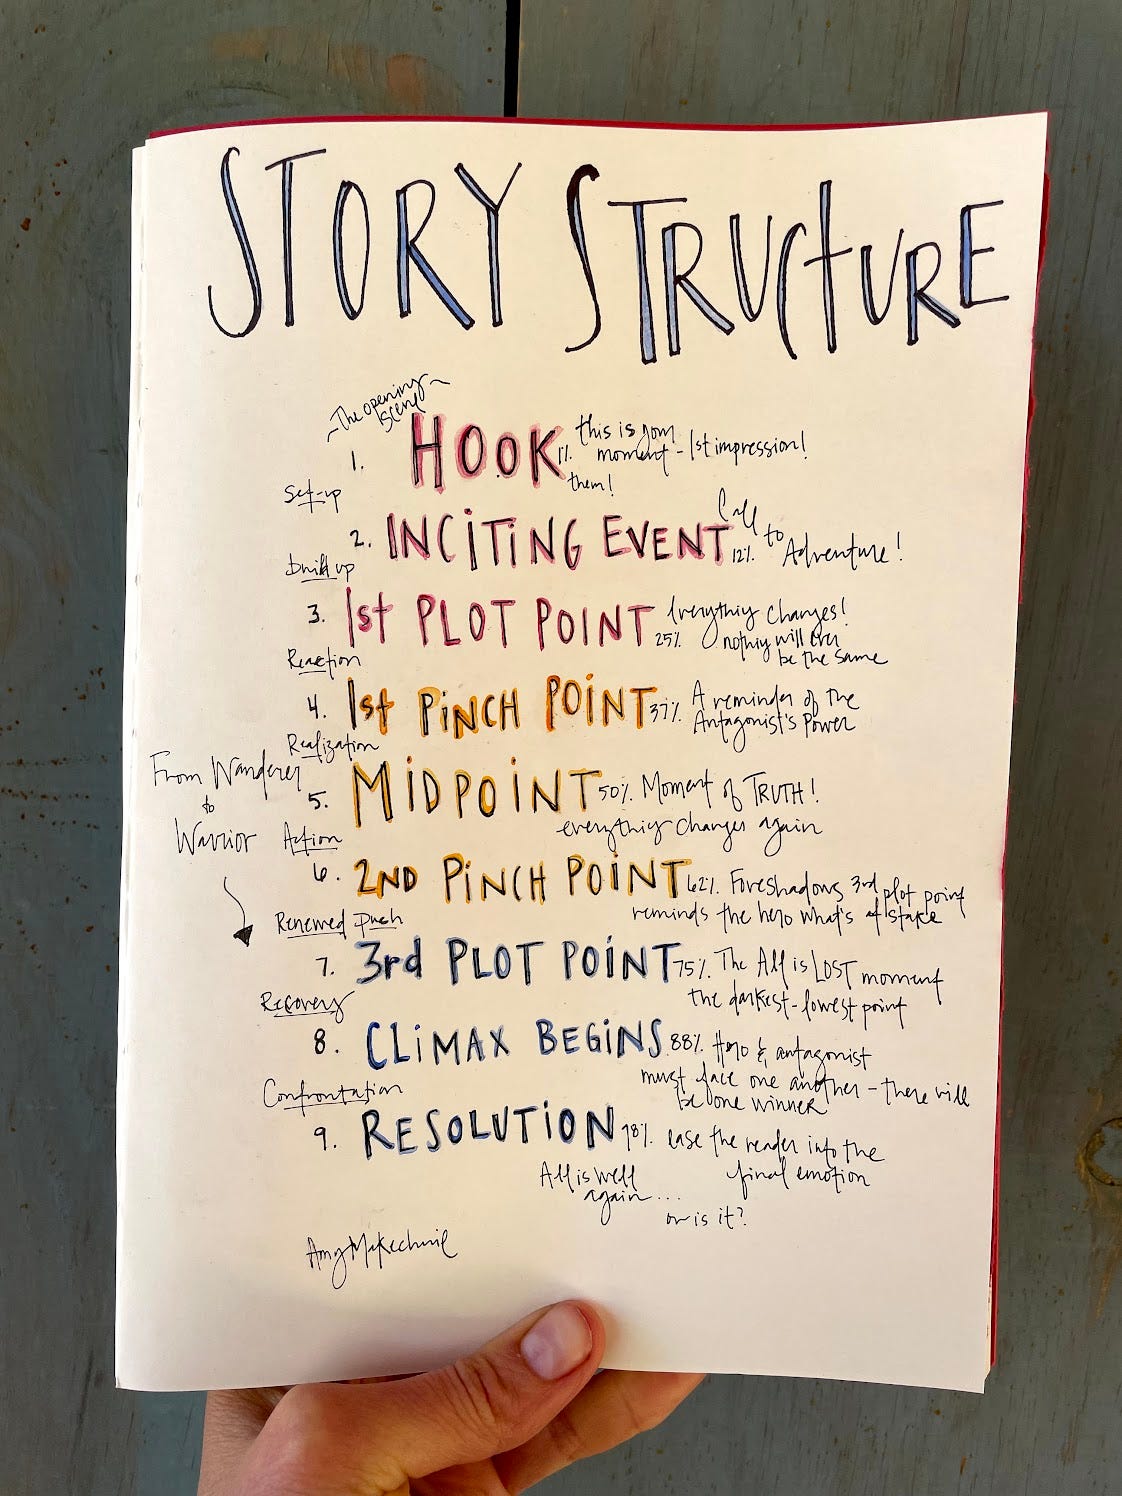 STORY STRUCTURE
~The opening~
scene
1. HOOK 1% this is your
moment - 1st impression!
them!
Set-up
2. INCITING EVENT 12% Call
to
Adventure!
Build up
3. 1st PLOT POINT 25% Everything changes!
nothing will ever
be the same
Reaction
4. 1st PINCH POINT 37% A reminder of the
Antagonist's Power
Realization
From Wanderer
to
Warrior
5. MIDPOINT 50% Moment of TRUTH!
everything changes again
Action
6. 2ND PINCH POINT 62% Foreshadows 3rd plot point
reminds the hero what's at stake
Renewed Push
7. 3rd PLOT POINT 75% The All is LOST moment
the darkest - lowest point
Recovery
8. CLIMAX BEGINS 88% Hero & antagonist
must face one another - there will
be one winner
Confrontation
9. RESOLUTION 98% ease the reader into the
final emotion
All is well
again...
or is it?
Amy Makechnie